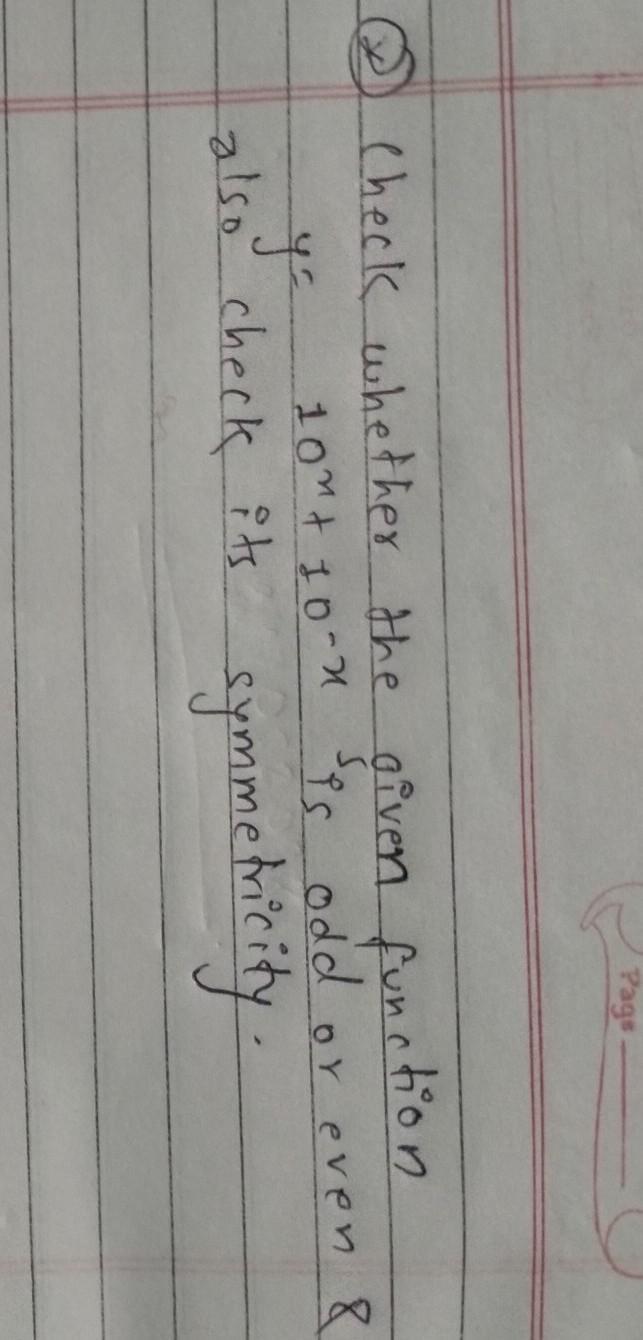 Page
x) Check whether the given function
y = 10^x + 10^-x is odd or even &
also check its symmetricity.